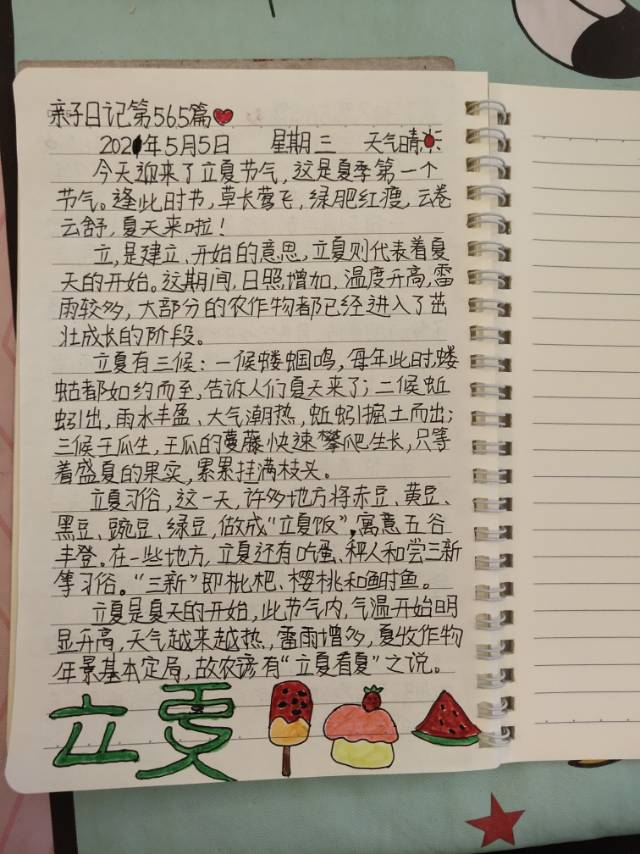 亲子日记第565篇
2021年5月5日 星期三 天气晴
今天迎来了立夏节气,这是夏季第一个
节气。逢此时节,草长莺飞,绿肥红瘦,云卷
云舒,夏天来啦!
立,是建立、开始的意思,立夏则代表着夏
天的开始。这期间,日照增加,温度升高,雷
雨较多,大部分的农作物都已经进入了茁
壮成长的阶段。
立夏有三候:一候蝼蝈鸣,每年此时,蝼
蛄都如约而至,告诉人们夏天来了;二候蚯
蚓出,雨水丰盈、大气潮热,蚯蚓掘土而出;
三候王瓜生,王瓜的蔓藤快速攀爬生长,只等
着盛夏的果实,累累挂满枝头。
立夏习俗,这一天,许多地方将赤豆、黄豆、
黑豆、豌豆、绿豆,做成“立夏饭”,寓意五谷
丰登。在一些地方,立夏还有吃蛋、秤人和尝三新
等习俗。“三新”即枇杷、樱桃和鲥鱼。
立夏是夏天的开始,此节气内,气温开始明
显升高,天气越来越热,雷雨增多,夏收作物
年景基本定局,故农谚有“立夏看夏”之说。
立夏